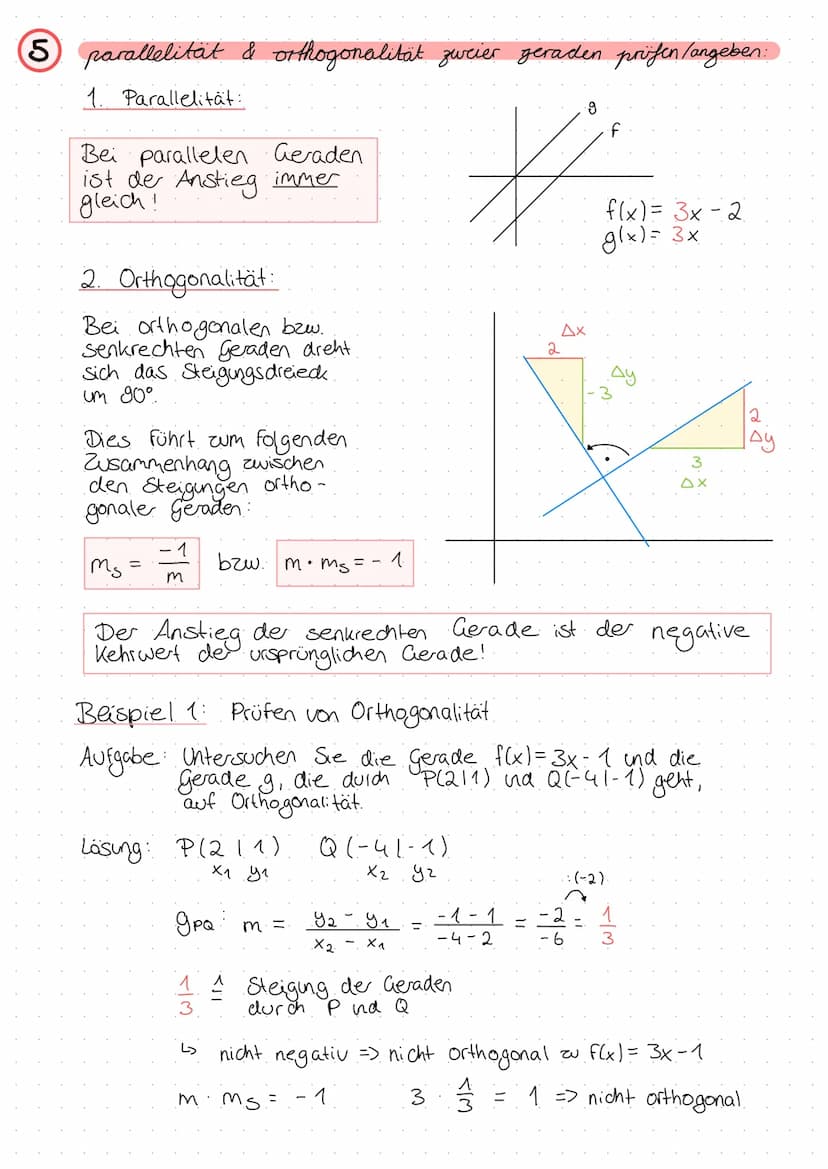 5 parallelität & orthogonalität zweier geraden prüfen/angeben:
1. Parallelität:
Bei parallelen Geraden
ist der Anstieg immer
gleich!
g
f
f(x) = 3x - 2
g(x) = 3x
2. Orthogonalität:
Bei orthogonalen bzw.
senkrechten Geraden dreht
sich das Steigungsdreieck
um 90°.
Dies führt zum folgenden
Zusammenhang zwischen
den Steigungen ortho-
gonaler Geraden:
Δx
2
Δy
-3
2
Δy
3
Δx
m_s = -1/m bzw. m · m_s = -1
Der Anstieg der senkrechten Gerade ist der negative
Kehrwert der ursprünglichen Gerade!
Beispiel 1: Prüfen von Orthogonalität
Aufgabe: Untersuchen Sie die Gerade f(x) = 3x - 1 und die
Gerade g, die durch P(2|1) und Q(-4|-1) geht,
auf Orthogonalität.
Lösung: P(2|1) Q(-4|-1)
x₁ y₁ x₂ y₂
:(-2)
g_PQ: m = (y₂ - y₁)/(x₂ - x₁) = (-1 - 1)/(-4 - 2) = -2/-6 = 1/3
1/3 ≙ Steigung der Geraden
durch P und Q
↳ nicht negativ => nicht orthogonal zu f(x) = 3x - 1
m · m_s = -1 3 · 1/3 = 1 => nicht orthogonal